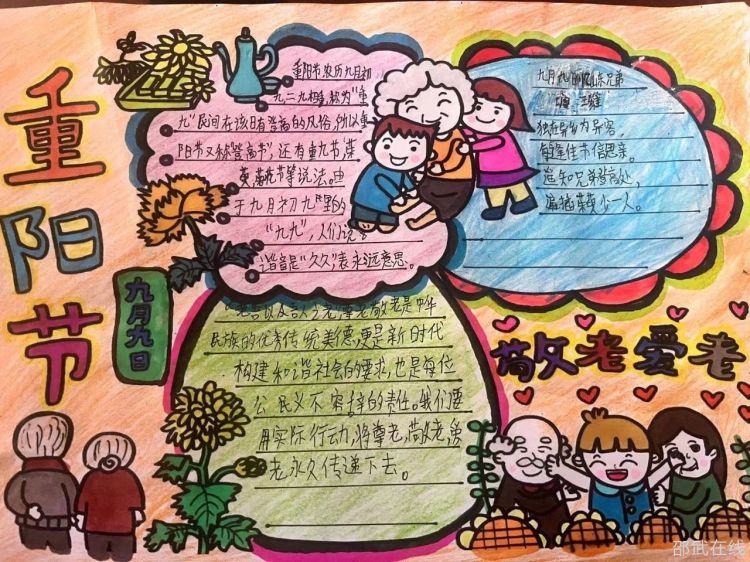 重阳节
九月九日
重阳节农历九月初
九,二九相重,称为"重
九"民间在该日有登高的风俗,所以重
阳节又称"登高节",还有重九节,茱
萸,菊花节等说法。由
于九月初九"的
"九九",人们说
谐音是"久久",表永远意思。
九月九 兄弟
独在异乡为异客,
每逢佳节倍思亲。
遥知兄弟登高处,
遍插茱萸少一人。
老吾以及 老,尊老敬老是中华
民族的优秀传统美德,更是新时代
构建和谐社会的要求,也是每位
公民义不容辞的责任。我们要
用实际行动,将尊老,敬老,爱
老永久传递下去。
敬老爱老
邵武在线